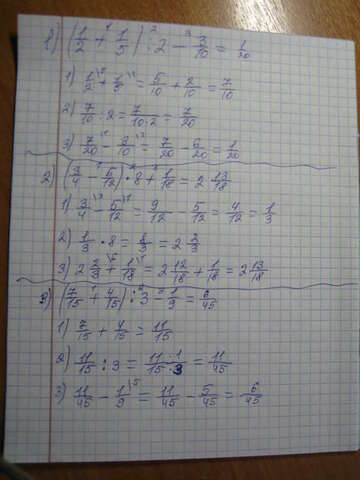 1) (1/2 + 1/5) : 2 - 3/10 = 1/20
1) 1/2 + 1/5 = 5/10 + 2/10 = 7/10
2) 7/10 : 2 = 7/10·2 = 7/20
3) 7/20 - 3/10 = 7/20 - 6/20 = 1/20
2) (3/4 - 5/12) · 8 + 1/18 = 2 13/18
1) 3/4 - 5/12 = 9/12 - 5/12 = 4/12 = 1/3
2) 1/3 · 8 = 8/3 = 2 2/3
3) 2 2/3 + 1/18 = 2 12/18 + 1/18 = 2 13/18
3) (7/15 + 4/15) : 3 - 1/9 = 6/45
1) 7/15 + 4/15 = 11/15
2) 11/15 : 3 = 11·1/15·3 = 11/45
3) 11/45 - 1/9 = 11/45 - 5/45 = 6/45